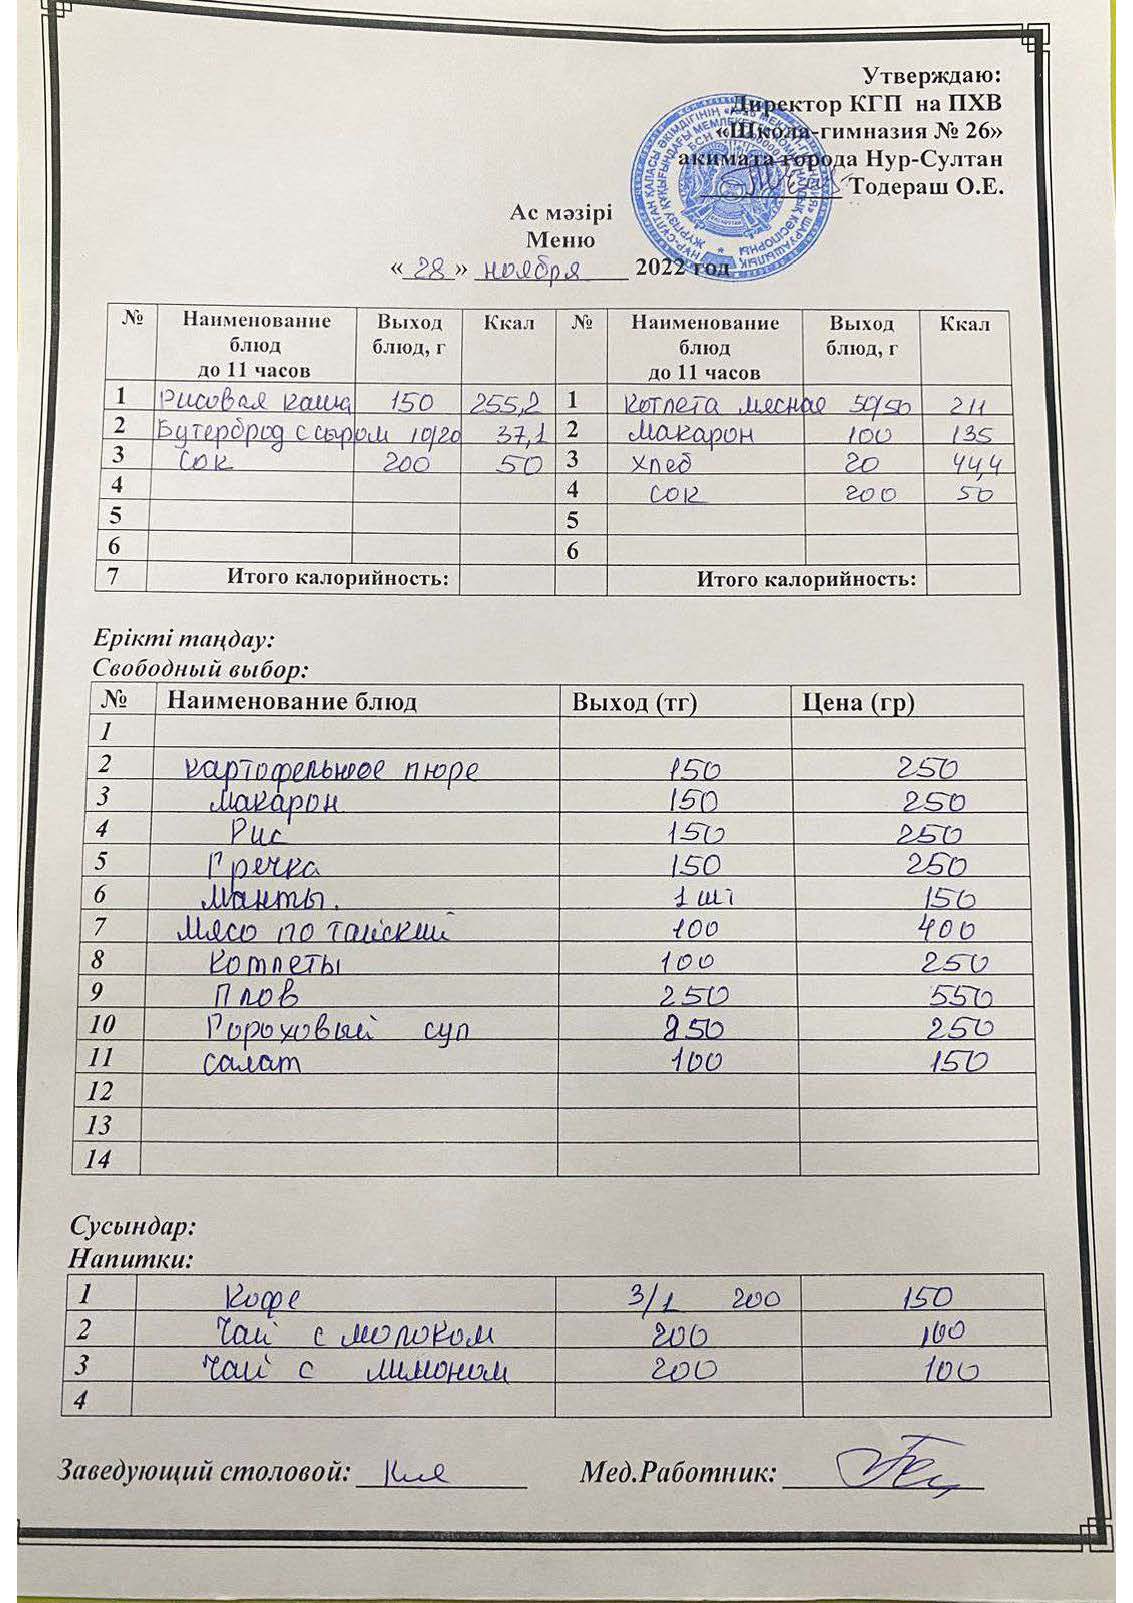 Утверждаю:
Директор КГП на ПХВ
«Школа-гимназия № 26»
акимата города Нур-Султан
Тодераш О.Е.
Ас мәзірі
Меню
« 28 » ноября 2022 год
№ Наименование блюд до 11 часов Выход блюд, г Ккал № Наименование блюд до 11 часов Выход блюд, г Ккал
1 Рисовая каша 150 255,2 1 Котлета мясная 50/50 211
2 Бутерброд с сыром 10/20 37,1 2 Макарон 100 135
3 Сок 200 50 3 Хлеб 20 44,4
4 4 сок 200 50
5 5
6 6
7 Итого калорийность: Итого калорийность:
Ерікті таңдау:
Свободный выбор:
№ Наименование блюд Выход (тг) Цена (гр)
1
2 картофельное пюре 150 250
3 макарон 150 250
4 Рис 150 250
5 Гречка 150 250
6 Манты. 1 шт 150
7 Мясо по тайский 100 400
8 Котлеты 100 250
9 Плов 250 550
10 Гороховый суп 250 250
11 салат 100 150
12
13
14
Сусындар:
Напитки:
1 Кофе 3/1 200 150
2 Чай с молоком 200 100
3 Чай с лимоном 200 100
4
Заведующий столовой: Мед.Работник: